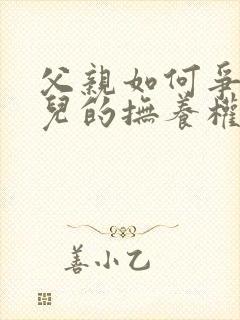 父親如何爭
兒的撫養權
善小乙